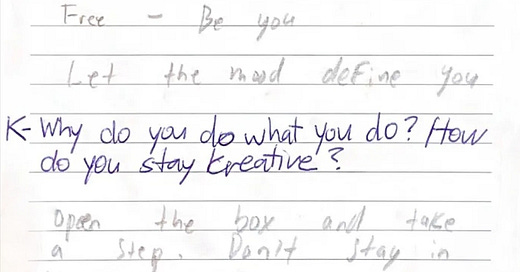 Free - Be you
Let the mood define you
K- Why do you do what you do? How
do you stay kreative?
open the box and take
a step. Don't stay in